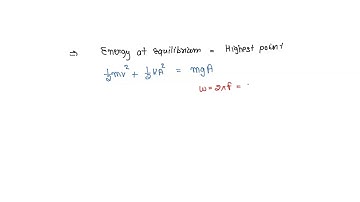 ⇒ Energy at equilibrium = Highest point
½mv² + ½kA² = mgA
ω = 2πf =